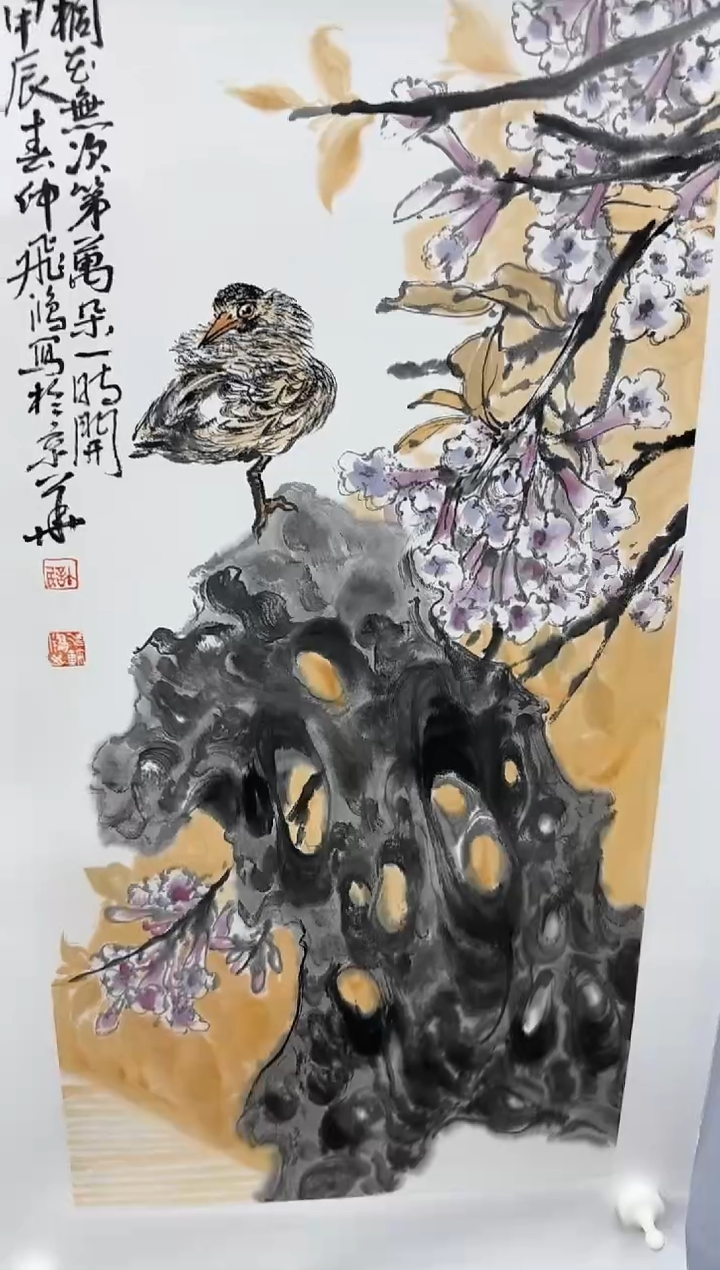 桐花無次第萬朵一時開
甲辰春仲飛鴻寫於京華